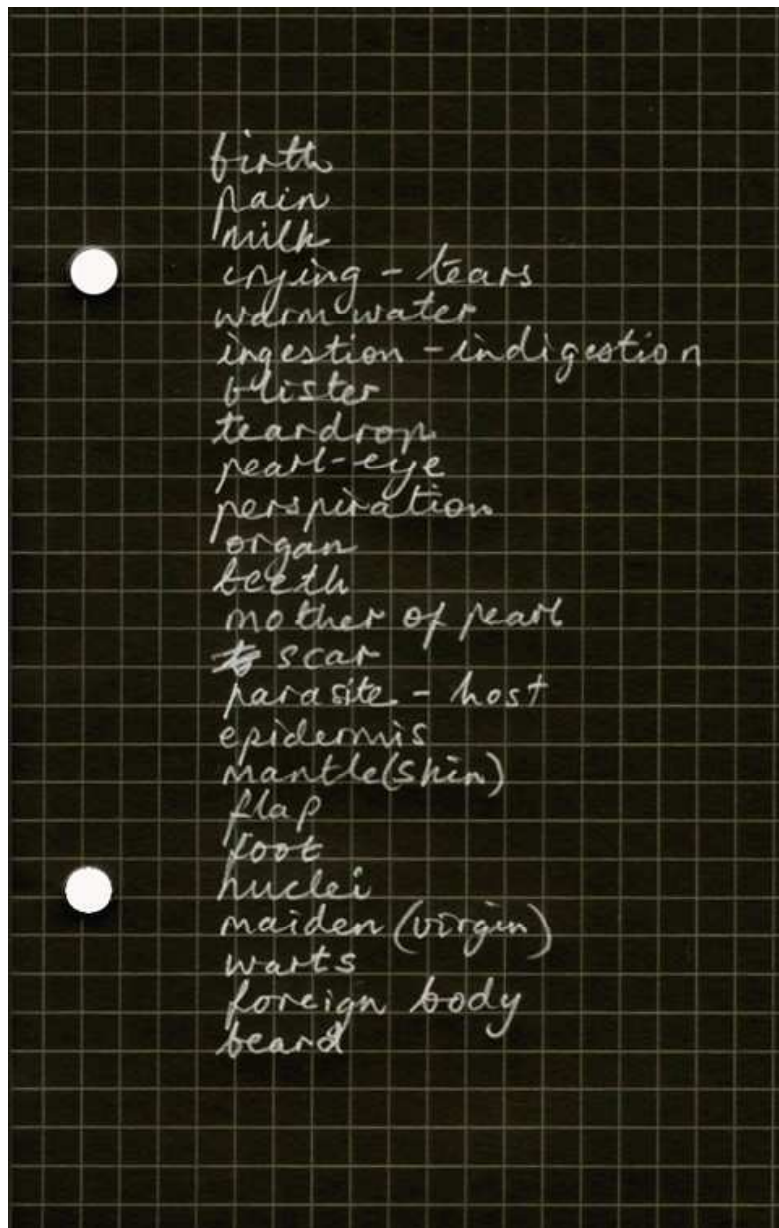 birth
pain
milk
crying - tears
warm water
ingestion - indigestion
blister
teardrop
pearl-eye
perspiration
organ
teeth
mother of pearl
scar
parasite - host
epidermis
mantle (skin)
flap
foot
nuclei
maiden (virgin)
warts
foreign body
beard